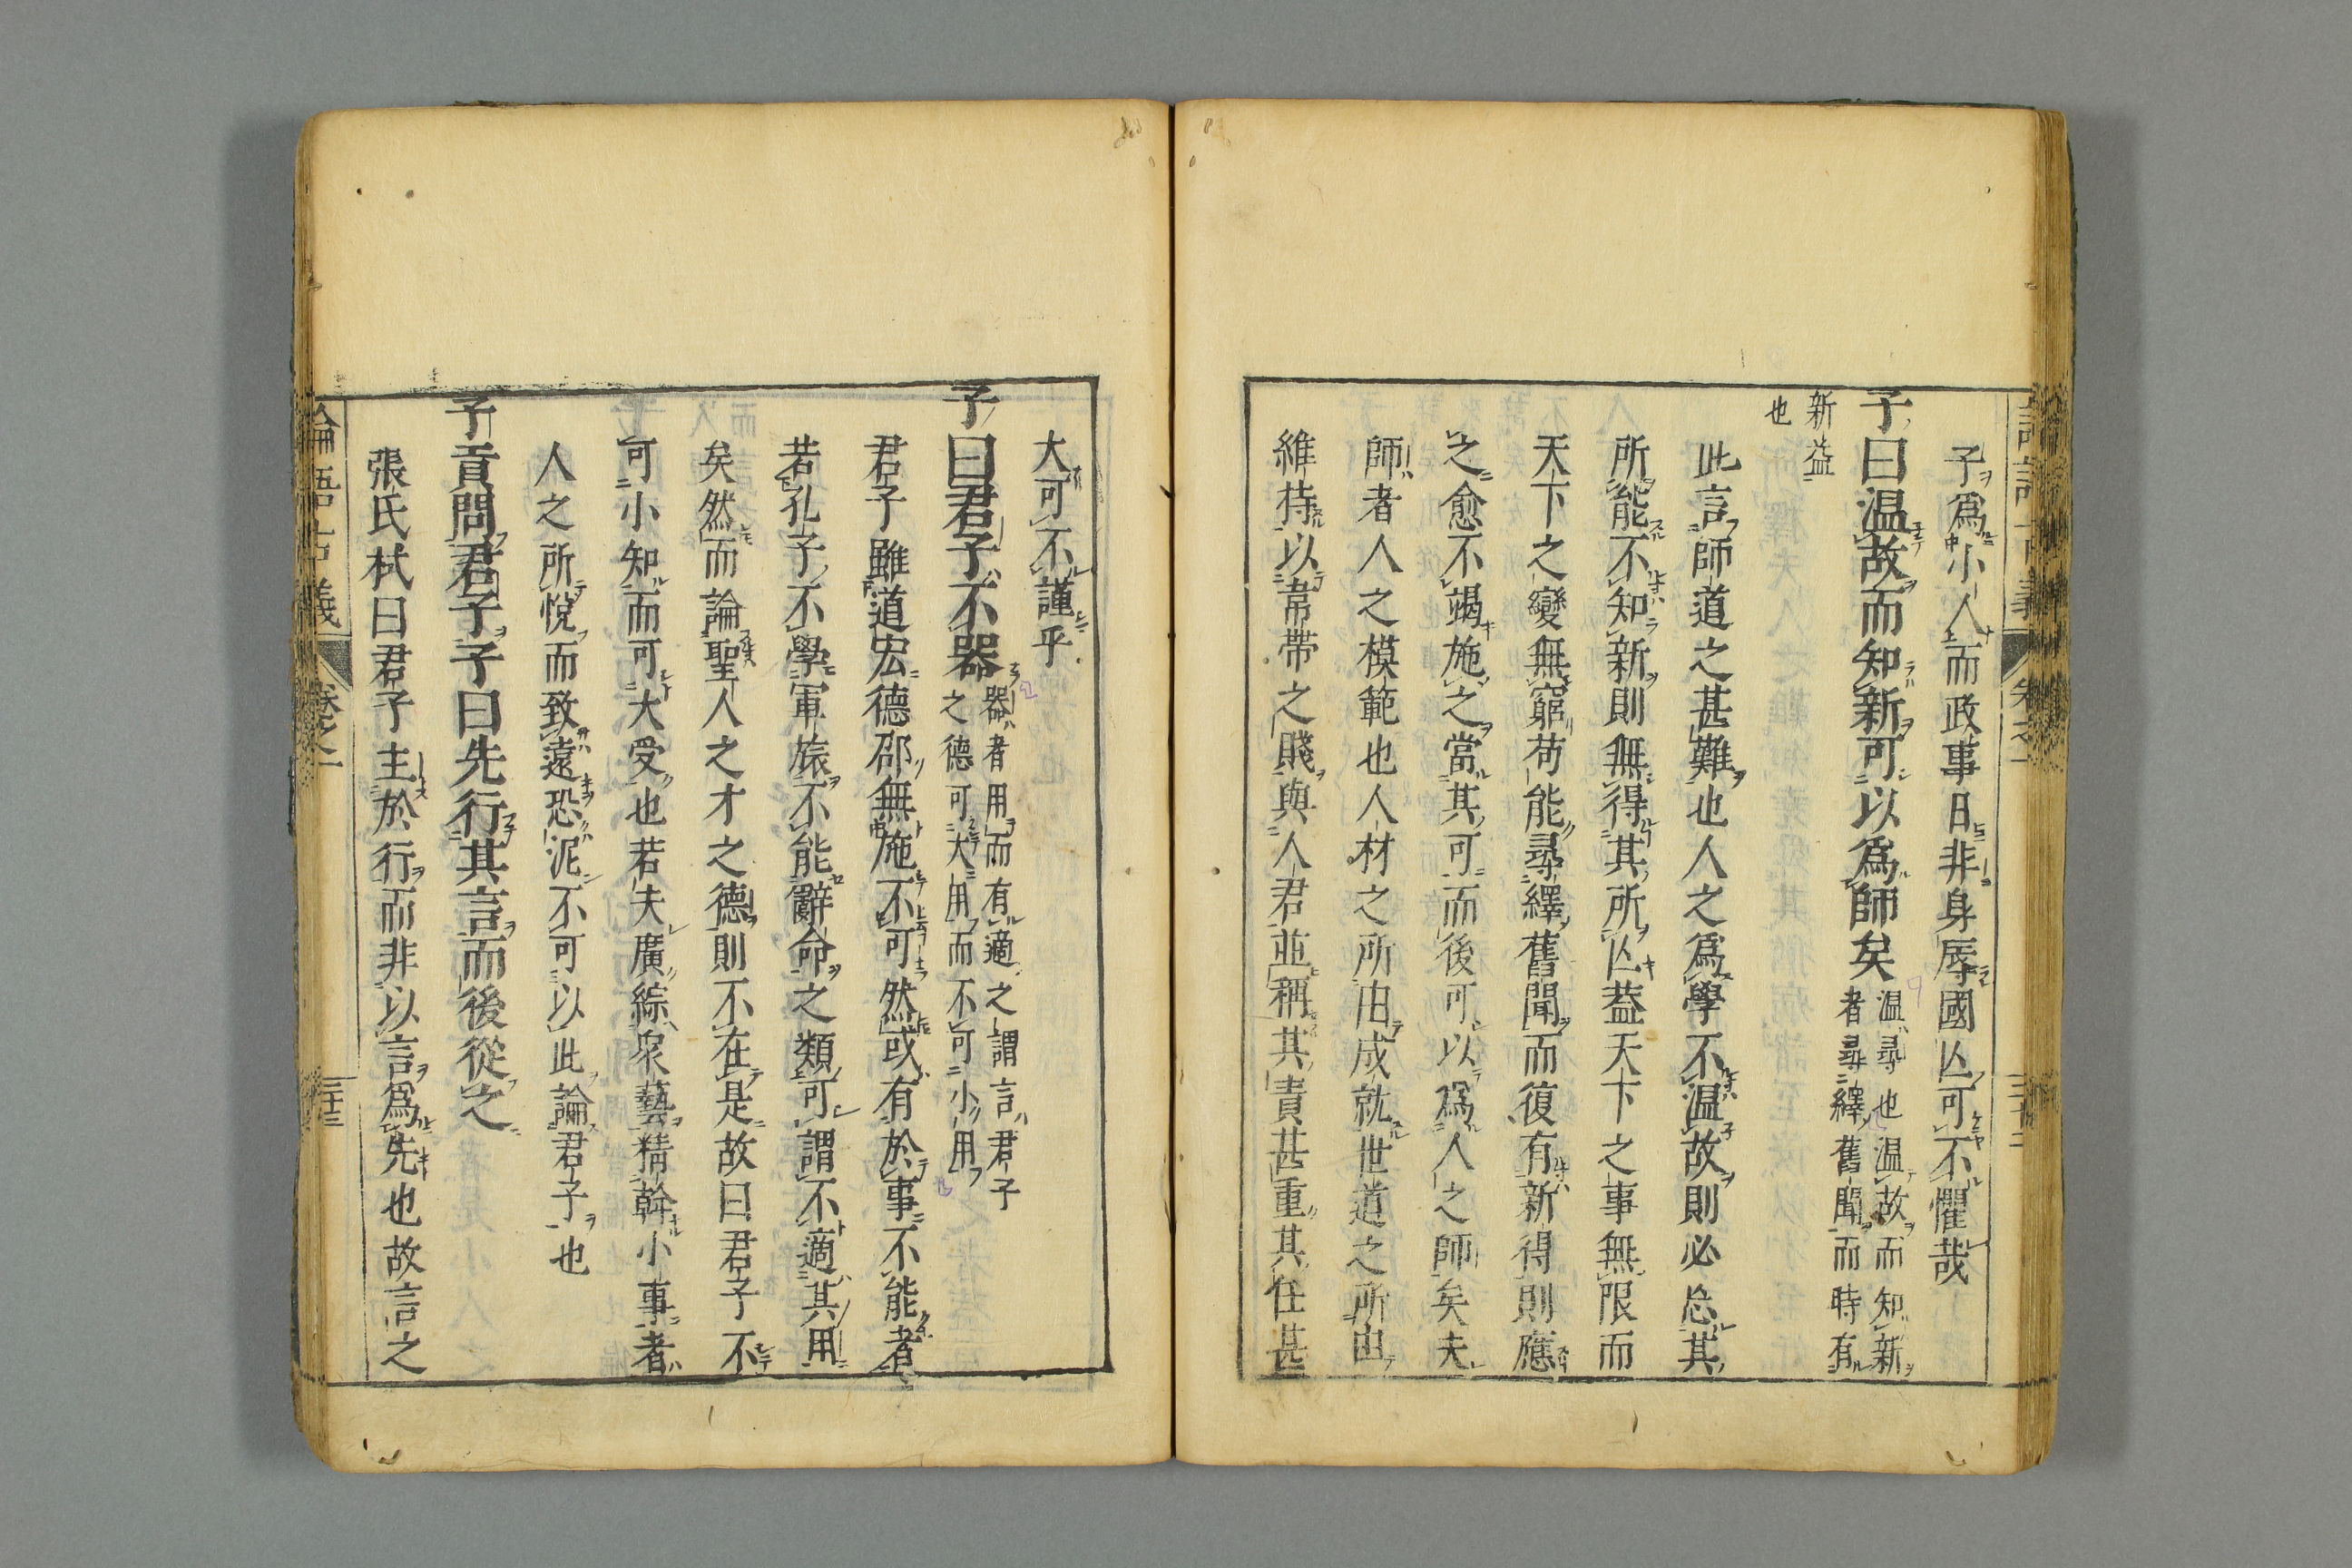 子爲小人而政事日非身辱國亾可不懼哉
子曰温故而知新可以爲師矣
温尋也温故而知新
者尋繹舊聞而時有
新益
也
此言師道之甚難也人之爲學不温故則必忘其
所能不知新則無得其所亾蓋天下之事無限而
天下之變無窮苟能尋繹舊聞而復有新得則應
之愈不竭施之當其可而後可以爲人之師矣夫
師者人之模範也人材之所由成就世道之所由
維持以韋帶之賤與人君並稱其責甚重其任甚
大可不謹乎
子曰君子不器
器者用而有適之謂言君子
之德可大用而不可小用
君子雖道宏德邵無施不可然或有於事不能者
若孔子不學軍旅不能辭命之類可謂不適其用
矣然而論聖人之才之德則不在是故曰君子不
可小知而可大受也若夫廣綜衆藝精幹小事者
人之所悅而致遠恐泥不可以此論君子也
子貢問君子子曰先行其言而後從之
張氏栻曰君子主於行而非以言爲先也故言之
論語古義 卷之一 二十三